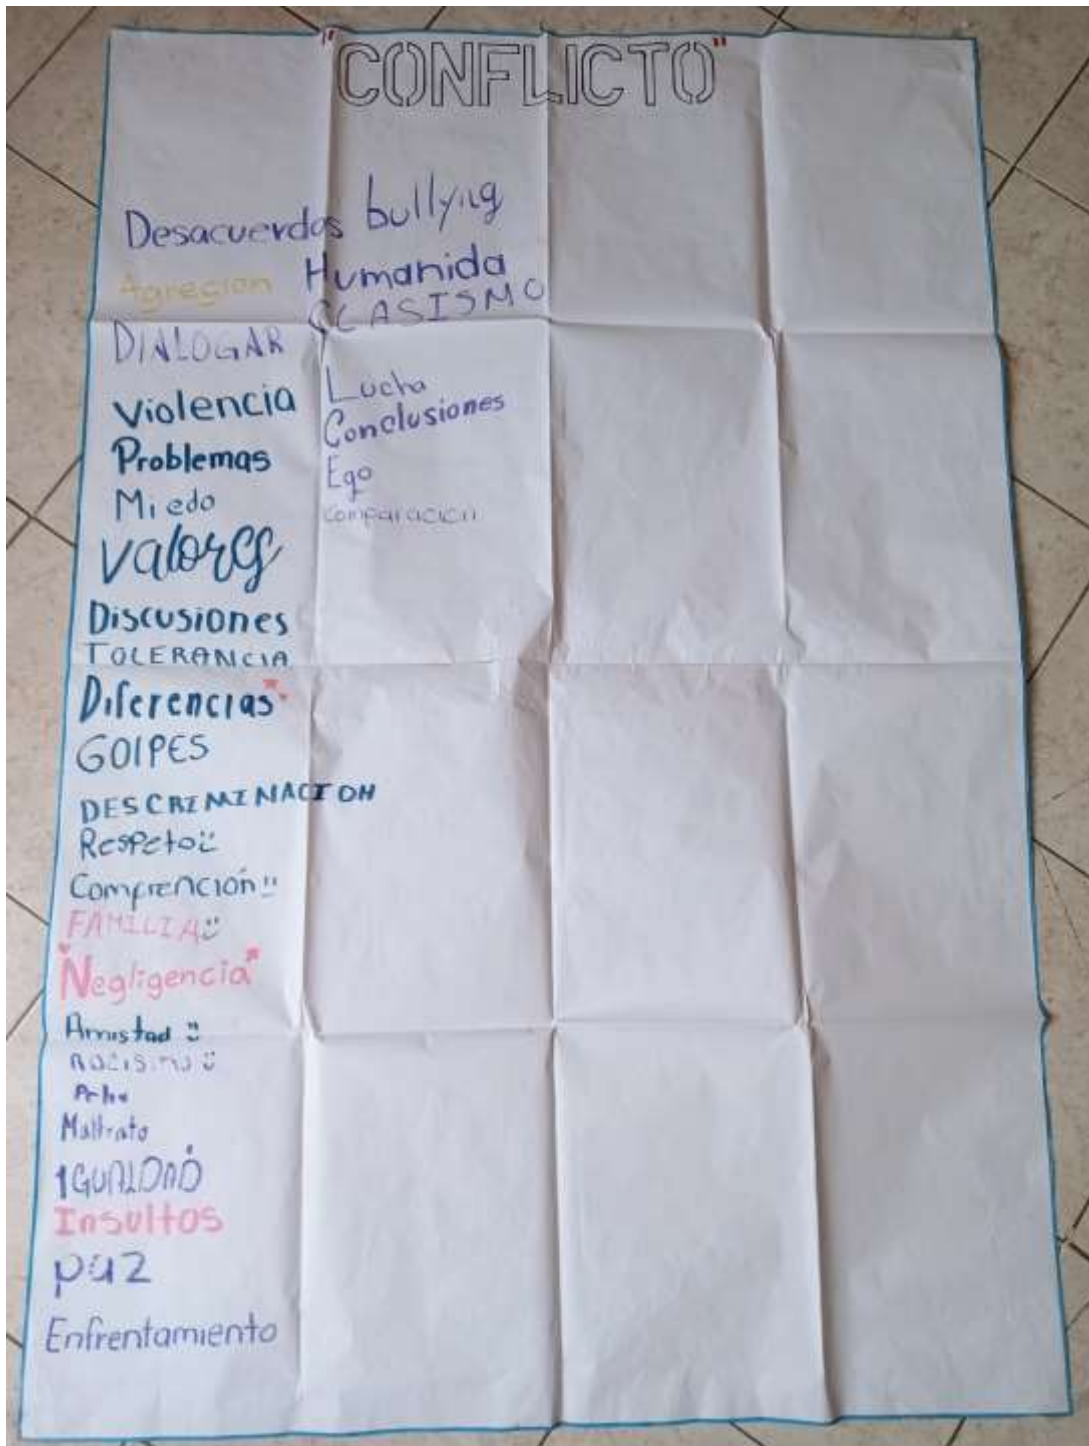 "CONFLICTO"
Desacuerdos bullying
Agregion Humanida
CLASISMO
DIALOGAR
Violencia
Problemas
Miedo
Valores
Discusiones
TOLERANCIA
Diferencias
GOlPES
DESCRIMINACION
Respeto
Comprención
FAMILIA
Negligencia
Amistad
RACISMO
Maltrato
IGUALDAD
Insultos
paz
Enfrentamiento
Lucha
Conclusiones
Ego
comparación